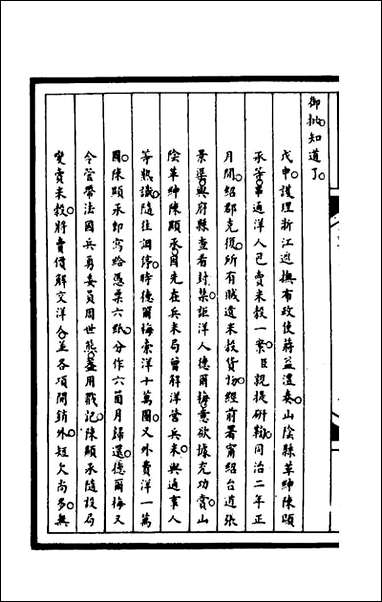 御批知道了
戊申護理浙江巡撫布政使蔣益澧奏山陰縣革紳陳顯
承等串通洋人已賣米穀一案臣親提研鞫同治二年正
月間紹郡克復所有賊遺米穀貨物經前署甯紹台道張
景渠與府縣查看封禁詎洋人德爾梅意欲據充功賞山
陰革紳陳顯承自先在兵米局曾解洋營兵米與通事人
等熟識隨往調停時德爾梅索洋十萬圓又外費洋一萬
圓陳顯承即寫給憑票六紙分作六箇月歸還德爾梅又
令管帶法國兵勇委員周世熊蓋用戳記陳顯承隨設局
變賣米穀將賣價解交洋人並各項開銷外短欠尚多無